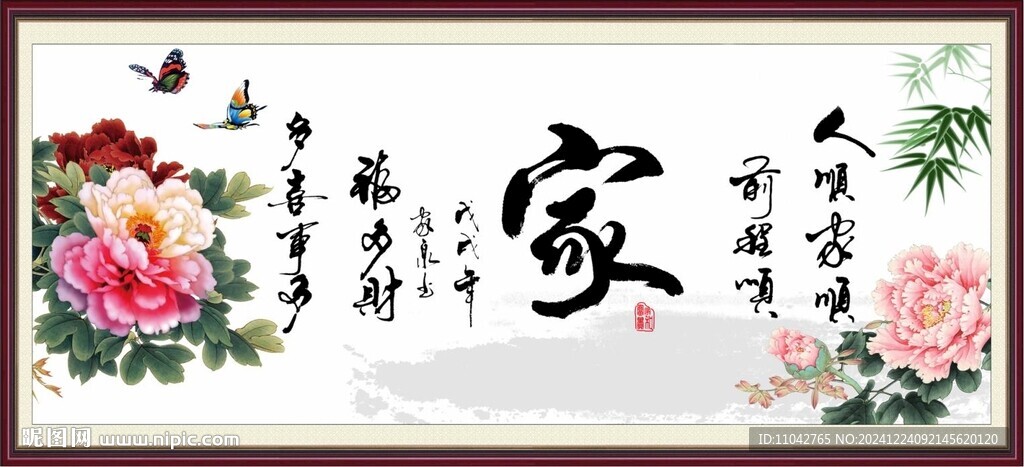 人順家順
前程順
家
戊戌年
家泉书
福多財
多喜事多
昵图网 www.nipic.com
ID:11042765 NO:20241224092145620120